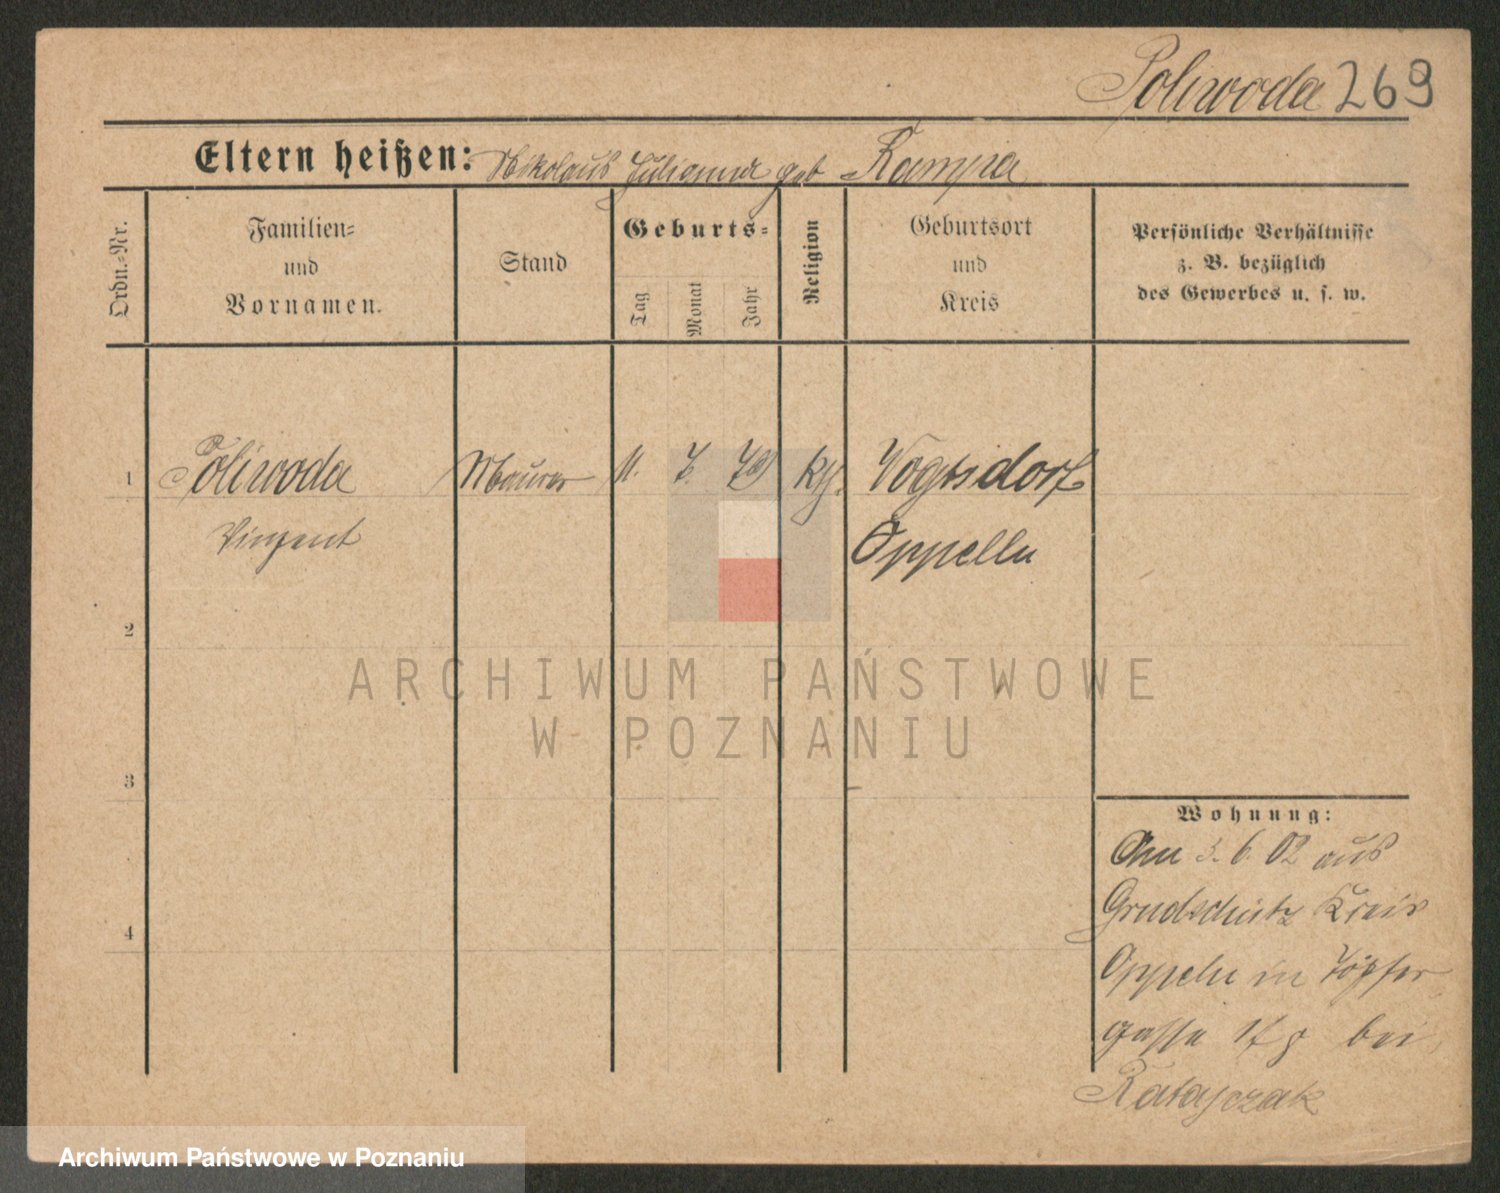 Poliwoda 269
Eltern heißen: Nikolaus Julianna geb Kampa
Ordn.-Nr.
Familien-
und
Vornamen.
Stand
Geburts-
Tag
Monat
Jahr
Religion
Geburtsort
und
Kreis
Persönliche Verhältnisse
z. B. bezüglich
des Gewerbes u. s. w.
1 Poliwoda Maurer 11. 7. kth. Vogtsdorf
Vinzent Oppelln
2
ARCHIWUM PAŃSTWOWE
W POZNANIU
3
Wohnung:
Am 3. 6. 02 aus
Grudschütz Kreis
4
Oppeln in Töpfer
gasse bei
Ratajczak
Archiwum Państwowe w Poznaniu